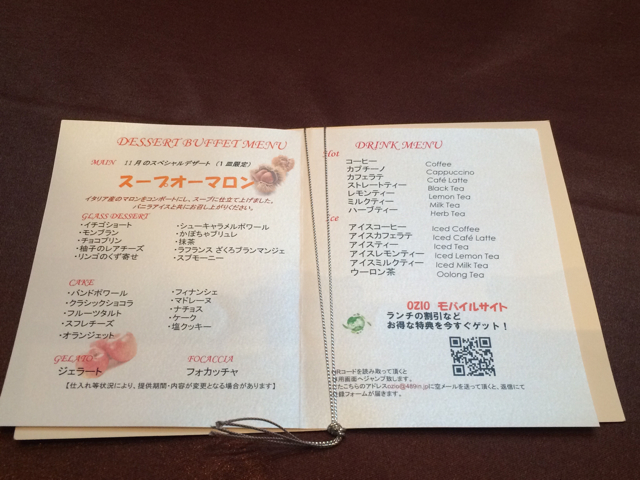 DESSERT BUFFET MENU
MAIN 11月のスペシャルデザート(1皿限定)
スープオーマロン
イタリア産のマロンをコンポートにし、スープに仕立て上げました。
バニラアイスと共にお召し上がりください。
GLASS DESSERT
・イチゴショート
・モンブラン
・チョコプリン
・柚子のレアチーズ
・リンゴのくず寄せ
・シューキャラメルポワール
・かぼちゃブリュレ
・抹茶
・ラフランス ざくろブランマンジェ
・スプモーニー
CAKE
・パンドポワール
・クラシックショコラ
・フルーツタルト
・スフレチーズ
・オランジェット
・フィナンシェ
・マドレーヌ
・ナチョス
・ケーク
・塩クッキー
GELATO
ジェラート
FOCACCIA
フォカッチャ
【仕入れ等状況により、提供期間・内容が変更となる場合があります】
DRINK MENU
Hot
コーヒー Coffee
カプチーノ Cappuccino
カフェラテ Café Latte
ストレートティー Black Tea
レモンティー Lemon Tea
ミルクティー Milk Tea
ハーブティー Herb Tea
Ice
アイスコーヒー Iced Coffee
アイスカフェラテ Iced Café Latte
アイスティー Iced Tea
アイスレモンティー Iced Lemon Tea
アイスミルクティー Iced Milk Tea
ウーロン茶 Oolong Tea
OZIO モバイルサイト
ランチの割引など
お得な特典を今すぐゲット!
QRコードを読み取って頂くと
用画面へジャンプ致します。
たこちらのアドレスozio@489m.jpに空メールを送って頂くと、返信にて
録フォームが届きます。